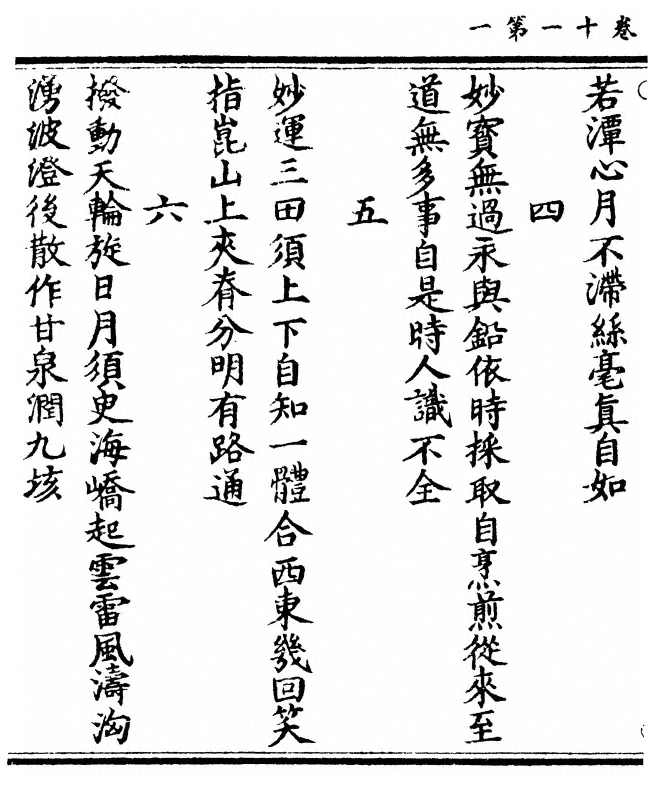 卷十一第一
若潭心月不滯絲毫眞自如
四
妙寳無過汞與鉛依時採取自烹煎從來至
道無多事自是時人識不全
五
妙運三田須上下自知一體合西東幾回笑
指崑山上夾脊分明有路通
六
撥動天輪旋日月須臾海嶠起雲雷風濤洶
湧波澄後散作甘泉潤九垓